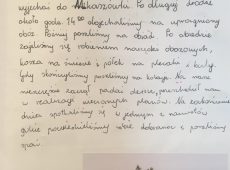 wyjechai do Makaszówka Po długiej drodze
około godz. 14⁰⁰ dojechaliśmy na upragniony
obóz Potem poszliśmy na obiad. Po obiedzie
zajęliśmy się robieniem namiotów obozowych,
kosza na śmieci i półek na plecaki i buty.
Gdy skończyliśmy poszliśmy na kolację. Na nasze
nieszczęście zaczął padać deszcz, przeszkodził nam
w realizacji wieczornych planów. Na zakończenie
dnia spotkaliśmy się w jednym z namiotów
gdzie powiedzieliśmy sobie dobranoc i poszliśmy
spać.